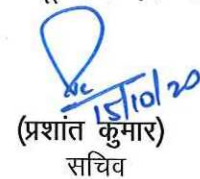 15/10/20
(प्रशांत कुमार)
सचिव